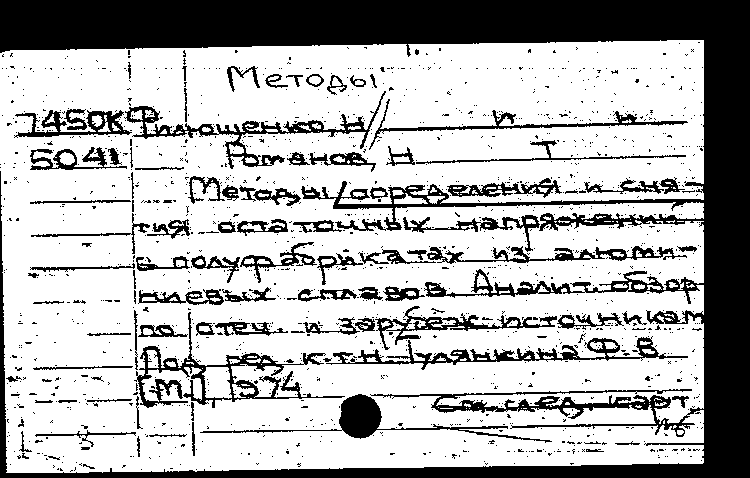 Методы
7450К Филющенко, Н // и н
5041 Романов, Н Т
Методы/определения и сня-
тия остаточных напряжений
в полуфабрикатах из алюми-
ниевых сплавов. Аналит. обзор
по отеч. и зарубеж. источникам
Под ред. к.т.н Тулянкина Ф. В.
[М.], 1974.
См. след. карт